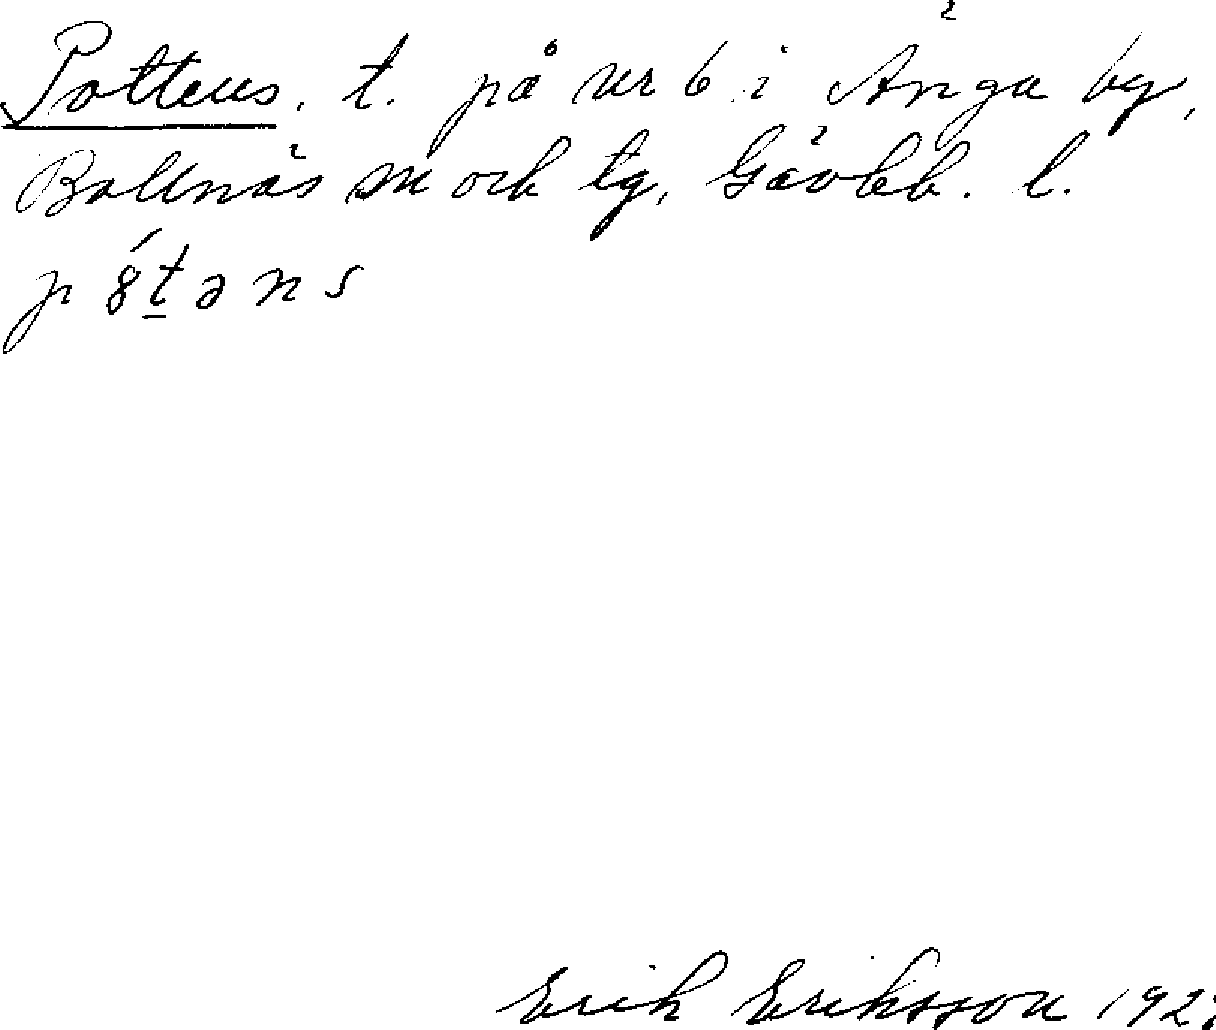 Pottens. t. på nr 6 i Änga by,
Bollnäs sn och tg, Gävleb. l.
p 8́ t̲ ə n s
Erik Eriksson